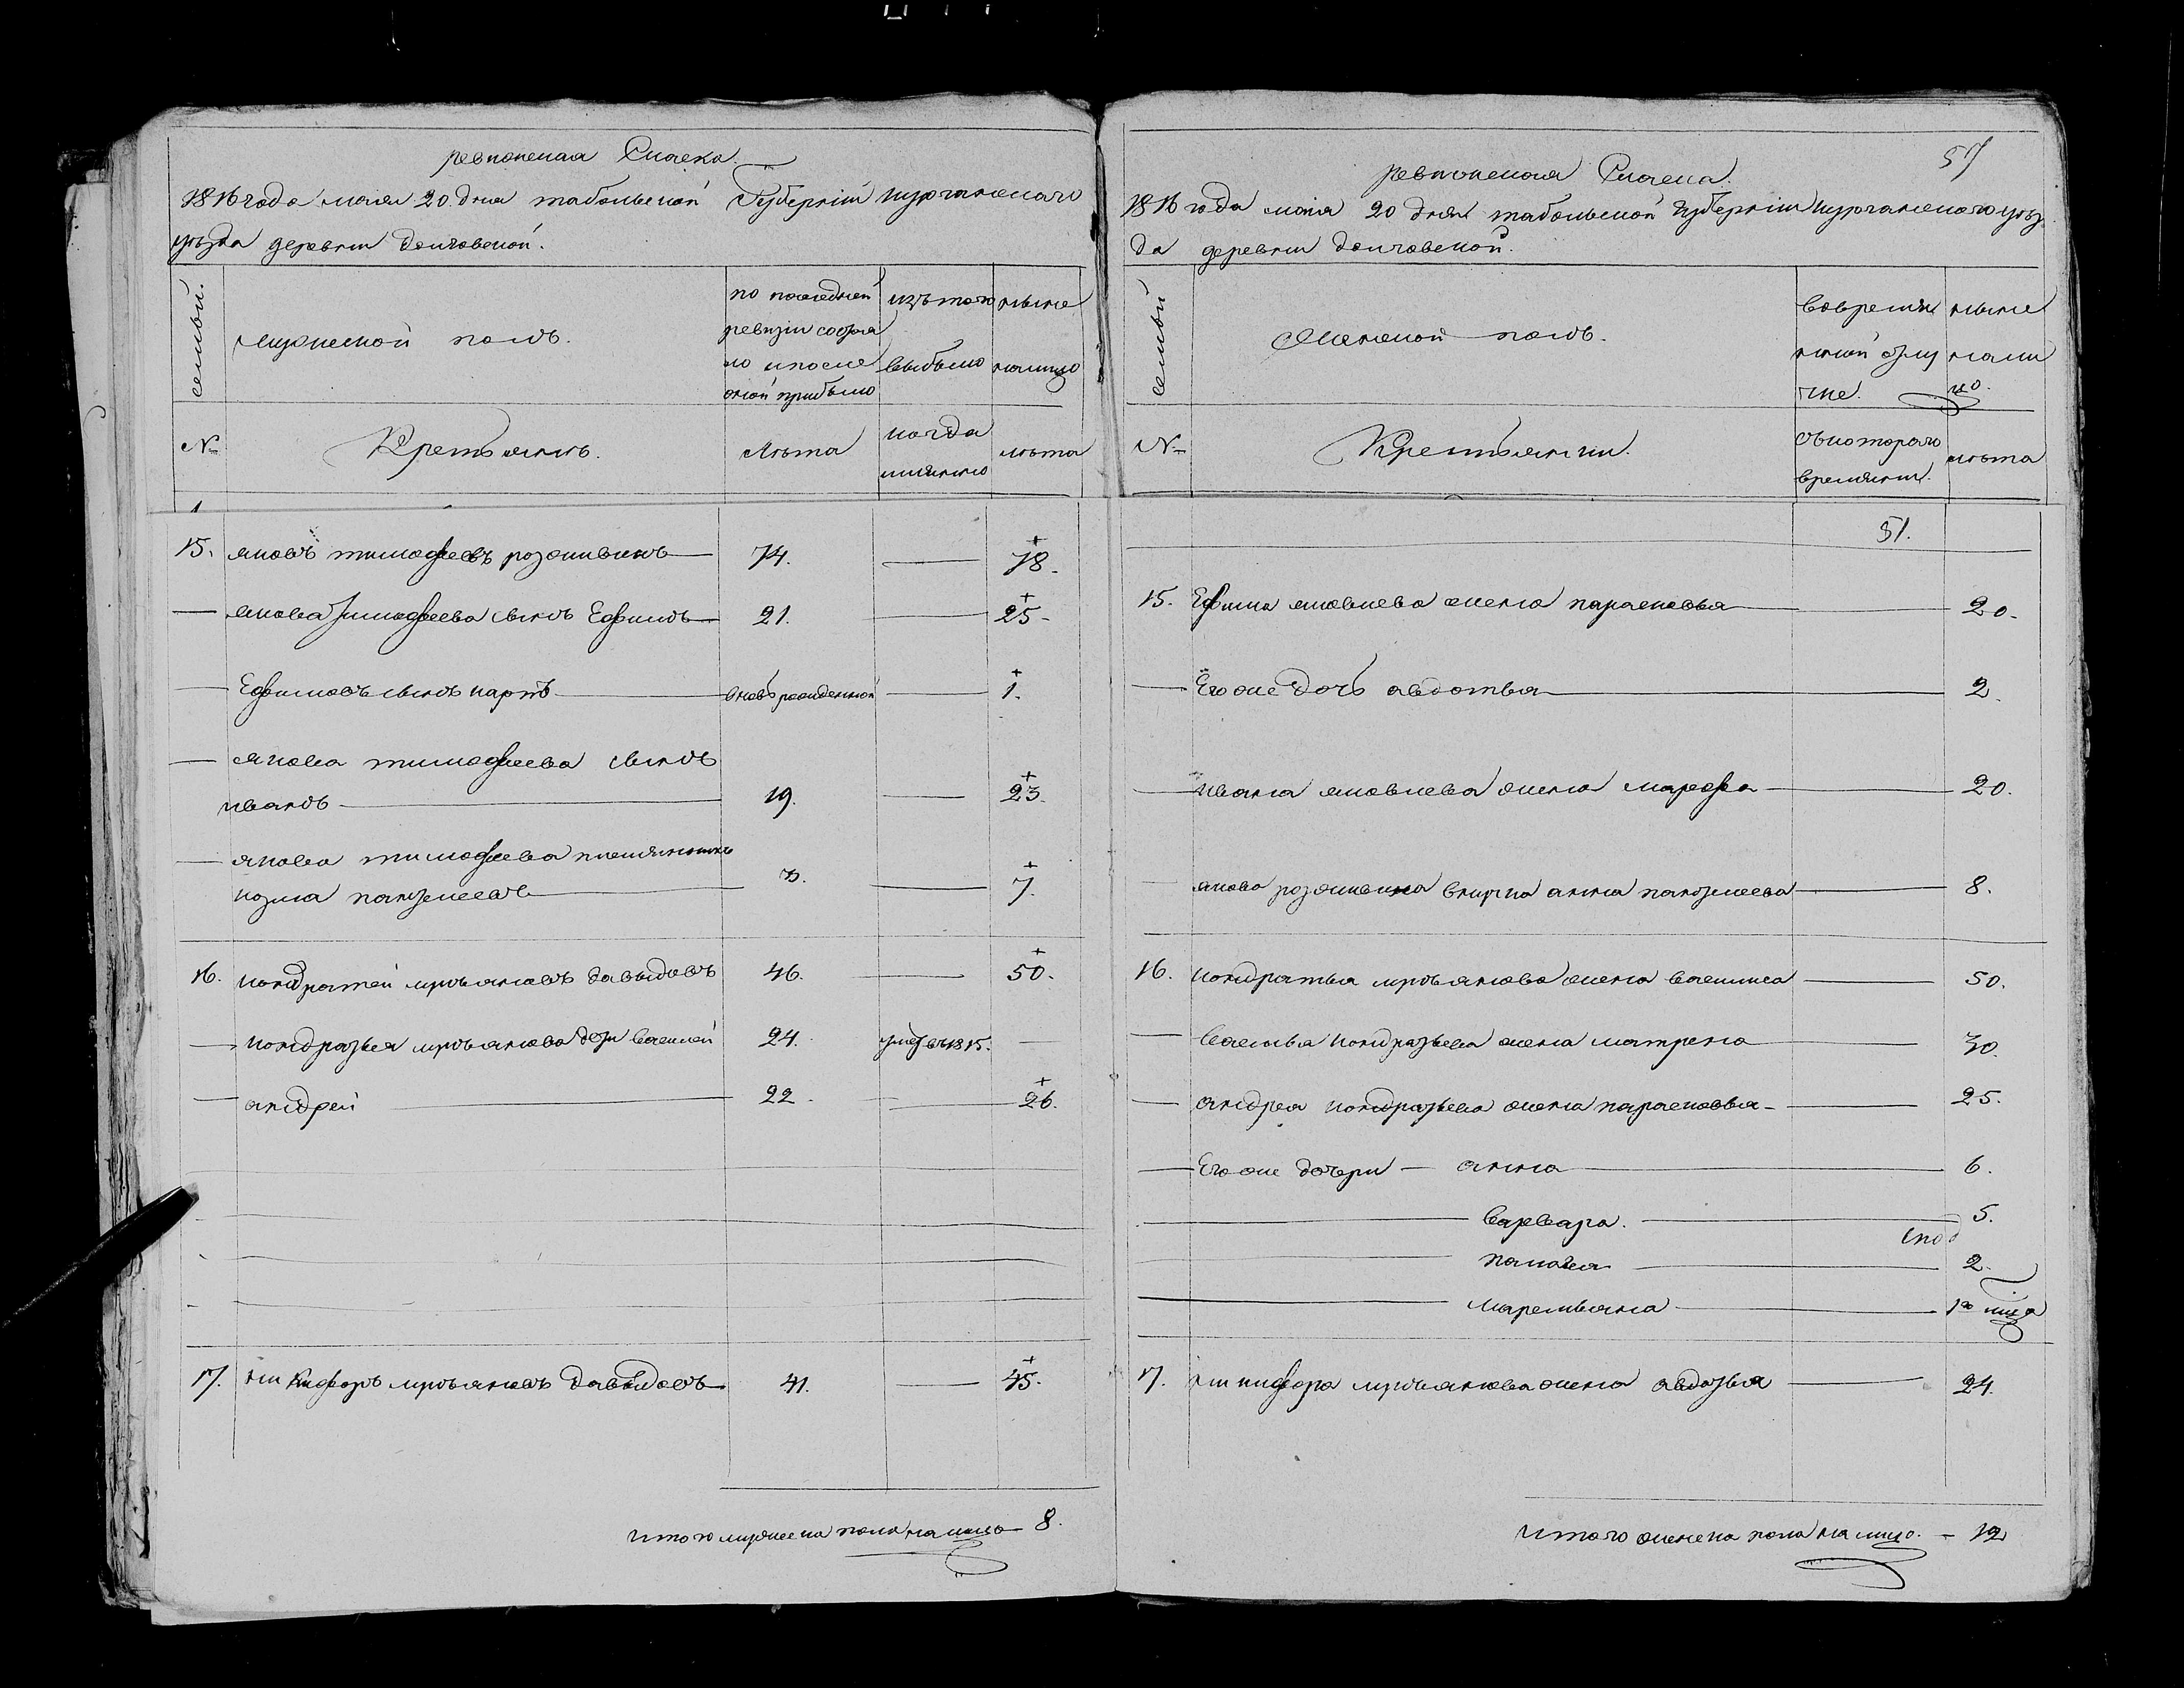 ревизская Сказка.
1816 года маия 20. дня табольской Губернiи курганскаго
уезда деревни долговской.
семьи.
мужеской полъ.
по последней
ревизiи состоя
ло и после
оной прибыло
изъ того
выбыло
ныне
налицо
№
Крестьянъ.
лѣта
когда
имянно
лѣта
15. яковъ тимофеевъ розашвинъ 74. 78.
якова тимофеева сынъ Ефимъ 21. 25.
Ефимовъ сынъ карпъ вновь рожденной 1.
якова тимофеева сынъ
иванъ 19. 23.
якова тимофеева племянникъ
козма 3. 7.
16. кондратей давыдовъ 46. 50.
кондратья дети василей 24. умеръ въ 1815.
андрей 22. 26.
17. никифоръ давыдовъ 41. 45.
итого мужеска пола налицо 8.
57
ревизская Сказка.
1816 года маия 20 дня табольской губернiи курганскаго уез
да деревни долговской.
семьи
Женской полъ.
вовремян
ной отлу
чке.
ныне
нали
цо.
№
Крестьянки.
съ котораго
времяни.
лѣта
51.
15. Ефима яковлева жена парасковья 20.
Его же дочь авдотья 2.
ивана яковлева жена марфа 20.
якова внучка анна 8.
16. кондратья жена василиса 50.
василья кондратьева жена матрена 30.
андрея кондратьева жена парасковья 25.
Его же дочери анна 6.
варвара. 5.
2.
маремьяна
17. никифора жена авдотья 24.
итого женска пола налицо. 12